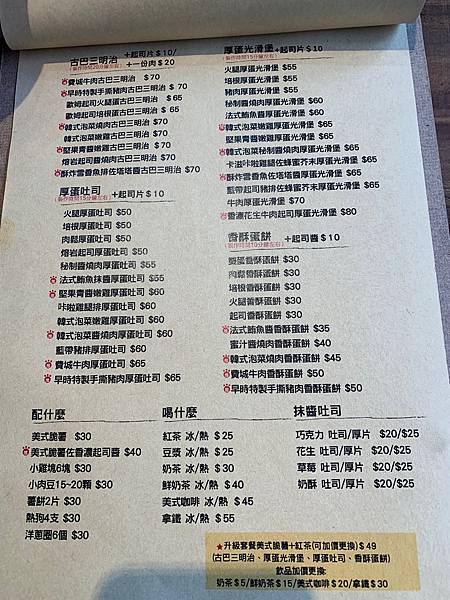 古巴三明治 +起司片$10/
(製作時間20分鐘左右) +一份肉$20
費城牛肉古巴三明治 $70
早時特製手撕豬肉古巴三明治 $70
歐姆起司火腿蛋古巴三明治 $65
歐姆起司培根蛋古巴三明治 $65
韓式泡菜燒肉古巴三明治 $70
韓式泡菜嫩雞古巴三明治 $70
堅果青醬嫩雞古巴三明治 $70
熔岩起司醬燒肉古巴三明治 $70
酥炸雪香魚排佐塔塔醬古巴三明治 $70
厚蛋吐司 +起司片$10
(製作時間15分鐘左右)
火腿厚蛋吐司 $50
培根厚蛋吐司 $50
肉鬆厚蛋吐司 $50
熔岩起司厚蛋吐司 $50
秘制醬燒肉厚蛋吐司 $55
法式鮪魚抹醬厚蛋吐司 $55
堅果青醬嫩雞厚蛋吐司 $60
咔啦雞腿厚蛋吐司 $60
韓式泡菜嫩雞厚蛋吐司 $60
韓式泡菜醬燒肉厚蛋吐司 $60
藍帶豬排厚蛋吐司 $60
費城牛肉厚蛋吐司 $65
早時特製手撕豬肉厚蛋吐司 $65
厚蛋光滑堡 +起司片$10
(製作時間15分鐘左右)
火腿厚蛋光滑堡 $55
培根厚蛋光滑堡 $55
豬肉厚蛋光滑堡 $55
秘制醬燒肉厚蛋光滑堡 $60
法式鮪魚醬厚蛋光滑堡 $60
韓式泡菜嫩雞厚蛋光滑堡 $65
堅果青醬嫩雞厚蛋光滑堡 $65
韓式泡菜秘制醬燒肉厚蛋光滑堡 $65
卡滋咔啦雞腿佐蜂蜜芥末厚蛋光滑堡 $65
酥炸雪香魚排佐塔塔醬厚蛋光滑堡 $65
藍帶起司豬排佐蜂蜜芥末厚蛋光滑堡 $65
牛肉厚蛋光滑堡 $70
香濃花生牛肉起司厚蛋光滑堡 $80
香酥蛋餅 +起司醬$10
(製作時間10分鐘左右)
蔬蛋香酥蛋餅 $30
肉鬆香酥蛋餅 $30
培根香酥蛋餅 $30
火腿香酥蛋餅 $30
起司香酥蛋餅 $30
法式鮪魚醬香酥蛋餅 $35
蜜汁醬燒肉香酥蛋餅 $40
韓式泡菜燒肉香酥蛋餅 $45
費城牛肉香酥蛋餅 $50
早時特製手撕豬肉香酥蛋餅 $50
配什麼
美式脆薯 $30
美式脆薯佐香濃起司醬 $40
小雞塊6塊 $30
小肉豆15~20顆 $30
薯餅2片 $30
熱狗4支 $30
洋蔥圈6個 $30
喝什麼
紅茶 冰/熱 $25
豆漿 冰/熱 $25
奶茶 冰/熱 $30
鮮奶茶 冰/熱 $40
美式咖啡 冰/熱 $45
拿鐵 冰/熱 $55
抹醬吐司
巧克力 吐司/厚片 $20/$25
花生 吐司/厚片 $20/$25
草莓 吐司/厚片 $20/$25
奶酥 吐司/厚片 $20/$25
★升級套餐美式脆薯+紅茶(可加價更換)$49
(古巴三明治、厚蛋光滑堡、厚蛋吐司、香酥蛋餅)
飲品加價更換:
奶茶$5/鮮奶茶$15/美式咖啡$20/拿鐵$30